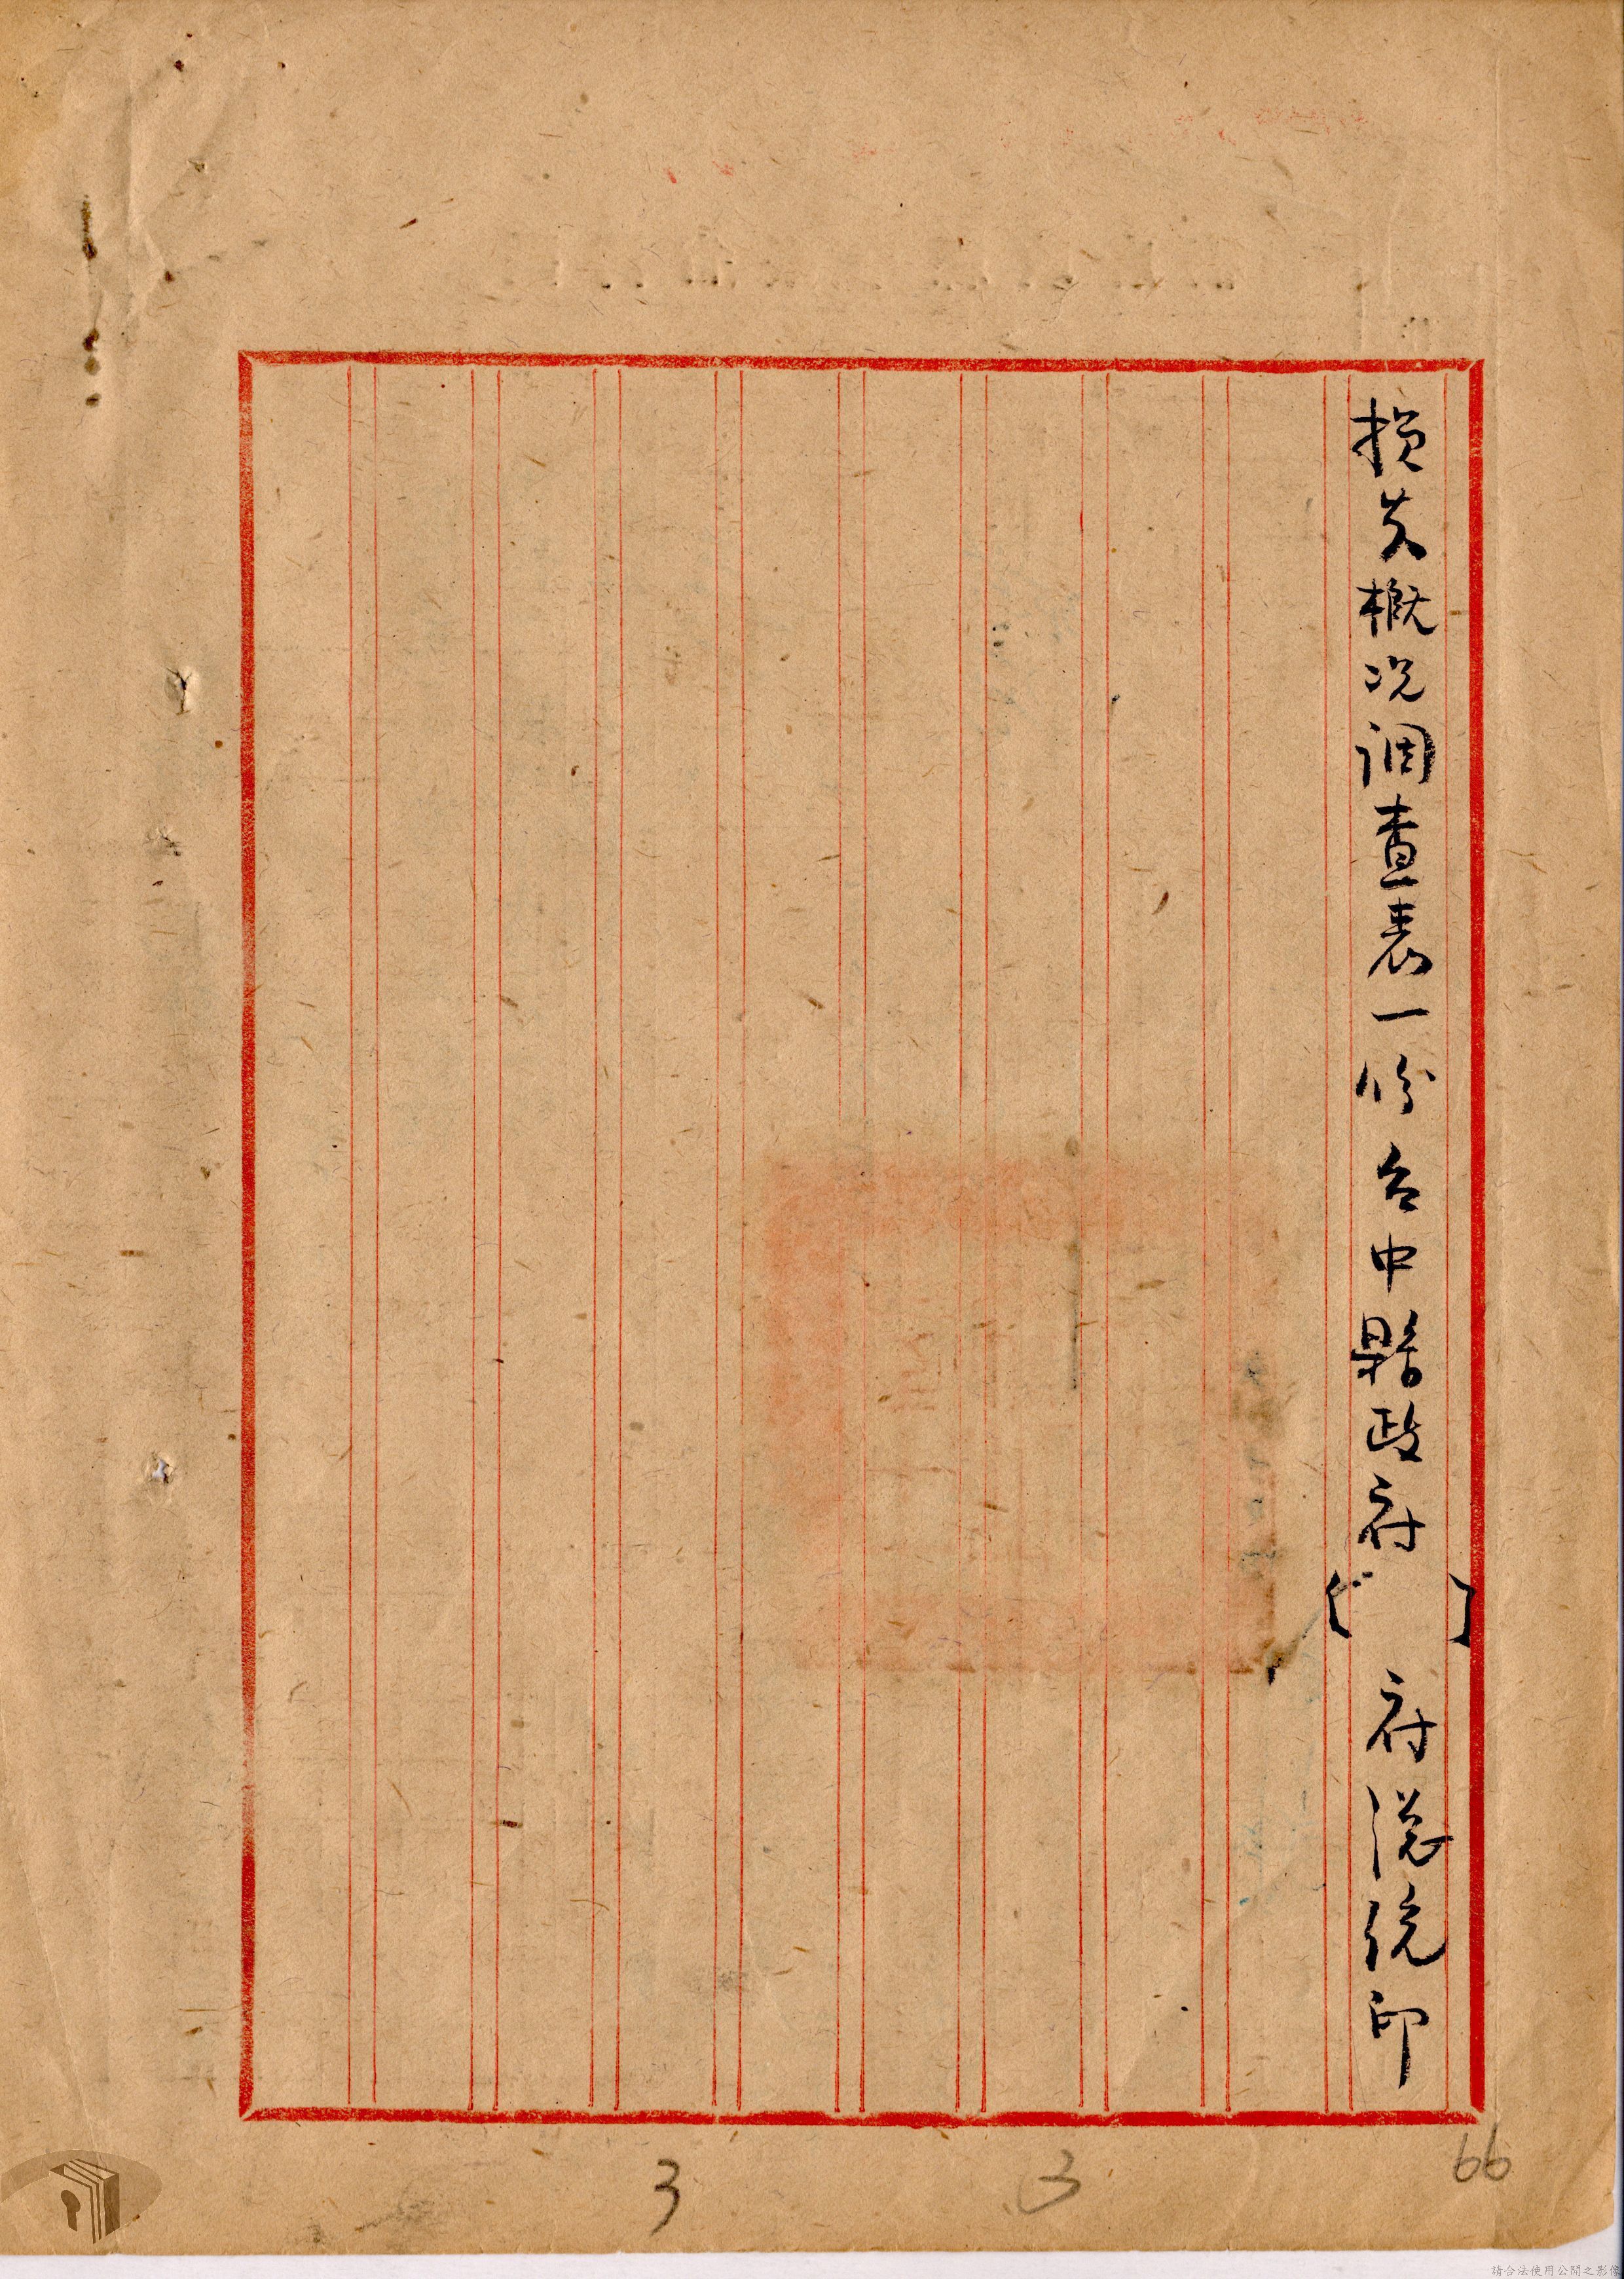 損失概况調查表一份台中縣政府〔　〕府總統印
3 3 66
請合法使用公開之影